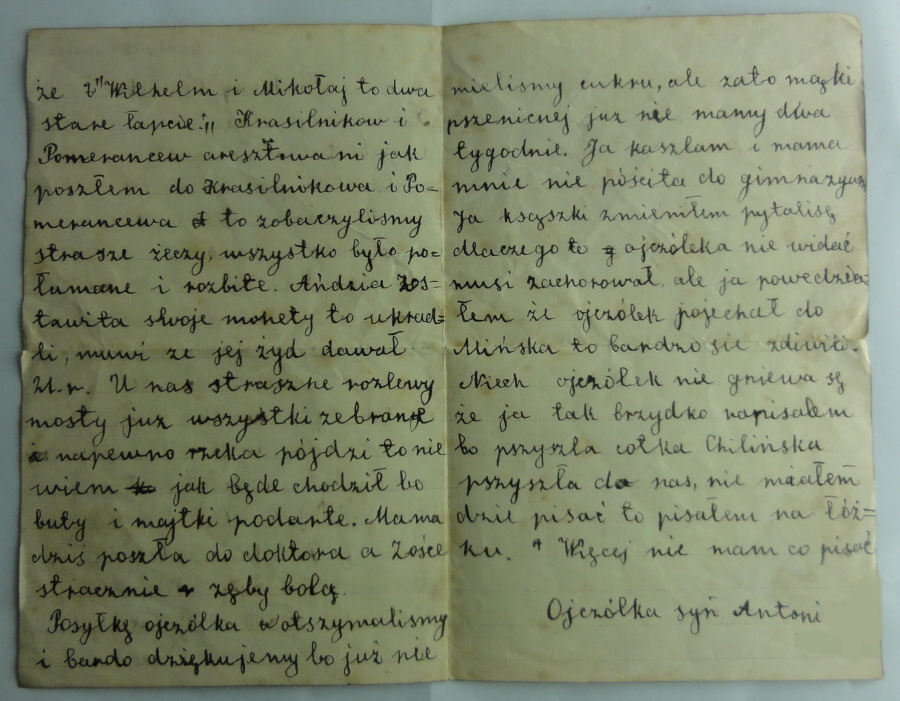 że z "Wilhelm i Mikołaj to dwa
stare łapcie!„ Krasilnikow i
Pomerancew aresztowani jak
poszłem do Krasilnikowa i Po=
merancewa to zobaczyliśmy
strasze żeczy, wszystko było po=
łumane i rozbite. Ańdzia zos=
tawiła swoje monety to ukrad=
li, muwi ze jej żyd dawał
21.r. U nas straszne rozlewy
mosty juz wszystki zebrane
i napewno rzeka pójdzi to nie
wiem jak będe chodził bo
buty i majtki podarte. Mama
dziś poszła do doktora a Zośce
stracznie zęby bolą.
Posyłkę ojczólka otszymalismy
i bardo dziękujemy bo już nie
mielismy cukru, ale zato mąki
pszenicnej juz nie mamy dwa
tygodnie. Ja kaszlam i mama
mnie nie póściła do gimnazyum
Ja ksąszki zmieniłem pytalisę
dlaczego to ojczóleka nie widać
musi zachorował, ale ja powedzia=
łem że ojczólek pojechał do
Mińska to bardzo sie zdiwili.
Niech ojczólek nie gniewa sę
że ja tak brzydko napisałem
bo pszyszla cotka Chilińska
pszyszła do nas, nie miałem
dzie pisać to pisałem na łóż=
ku. Więcej nie mam co pisać
Ojczólka syn Antoni